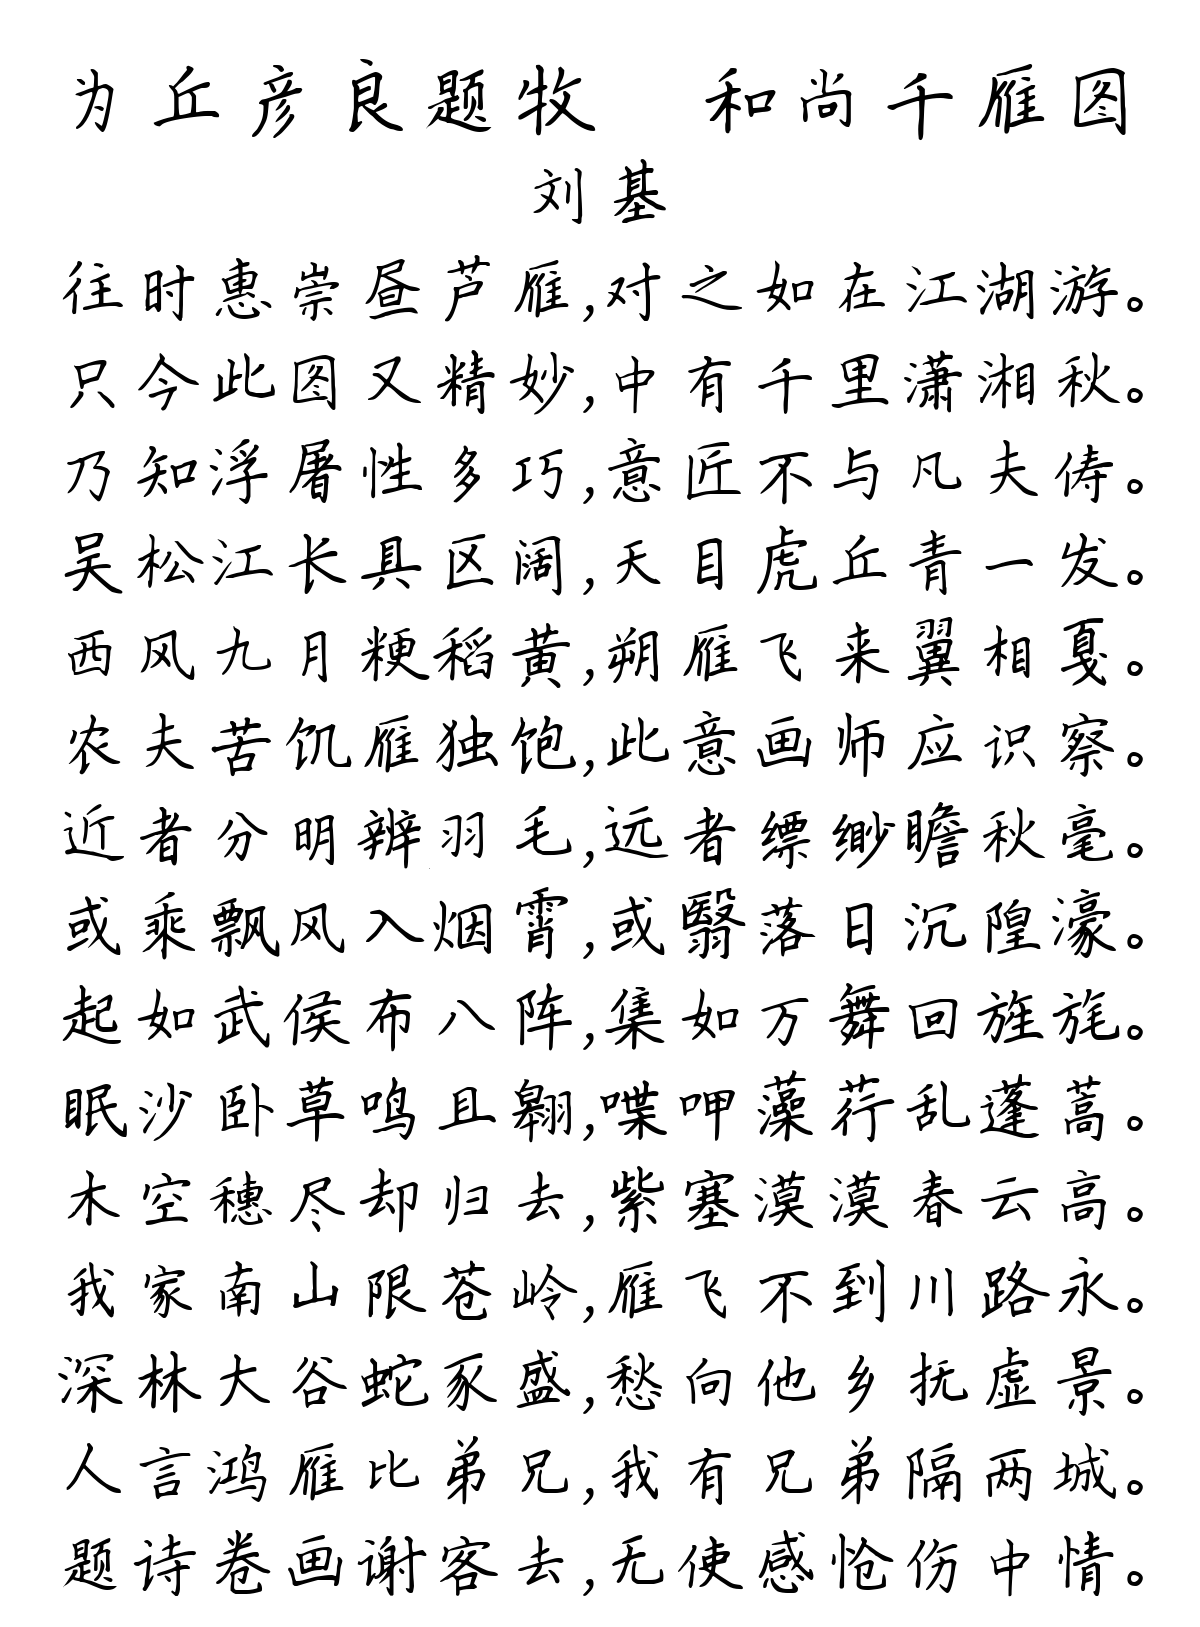 为丘彦良题牧　和尚千雁图
刘基
往时惠崇昼芦雁,对之如在江湖游。
只今此图又精妙,中有千里潇湘秋。
乃知浮屠性多巧,意匠不与凡夫俦。
吴松江长具区阔,天目虎丘青一发。
西风九月粳稻黄,朔雁飞来翼相戛。
农夫苦饥雁独饱,此意画师应识察。
近者分明辨羽毛,远者缥缈瞻秋毫。
或乘飘风入烟霄,或翳落日沉隍濠。
起如武侯布八阵,集如万舞回旌旄。
眠沙卧草鸣且翱,喋呷藻荇乱蓬蒿。
木空穗尽却归去,紫塞漠漠春云高。
我家南山限苍岭,雁飞不到川路永。
深林大谷蛇豕盛,愁向他乡抚虚景。
人言鸿雁比弟兄,我有兄弟隔两城。
题诗卷画谢客去,无使感怆伤中情。